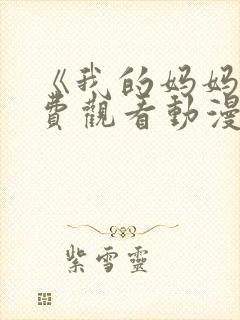 《我的妈妈
費觀看動漫
紫雪靈